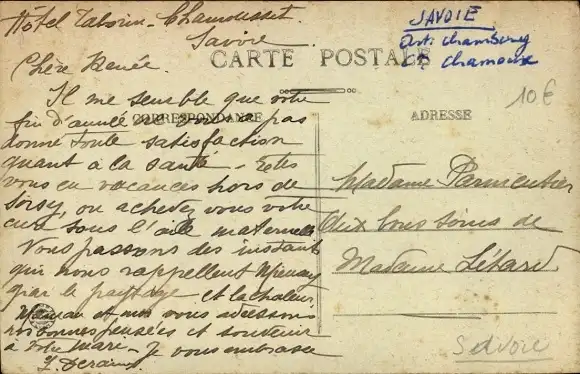 Hôtel Taborin - Chamousset.
Savoie.
SAVOIE
Arrt chambery
Ct chamoux
CARTE POSTALE
10€
Chère Renée.
CORRESPONDANCE
ADRESSE
Il me semble que votre
fin d'année ne vous a pas
donné toute satisfaction
quant à la santé - Etes
vous en vacances hors de
ou achevez vous votre
cure sous l'aile maternelle
Vous passons des instants
qui nous rappellent
par le paysage et la chaleur.
Maman et moi vous adressons
nos bonnes pensées et souvenir
à votre mari - Je vous embrasse
Madame Parmentier
aux bons soins de
Madame Létard
Savoie